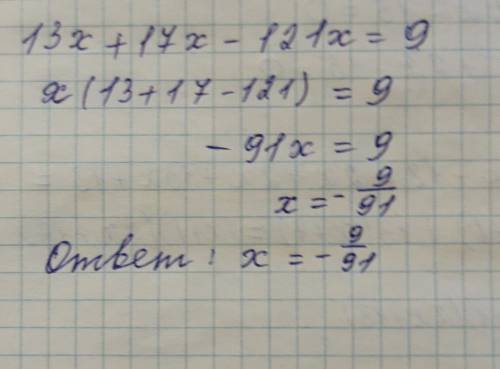 13x + 17x - 121x = 9
x(13 + 17 - 121) = 9
- 91x = 9
x = - 9/91
Ответ: x = - 9/91